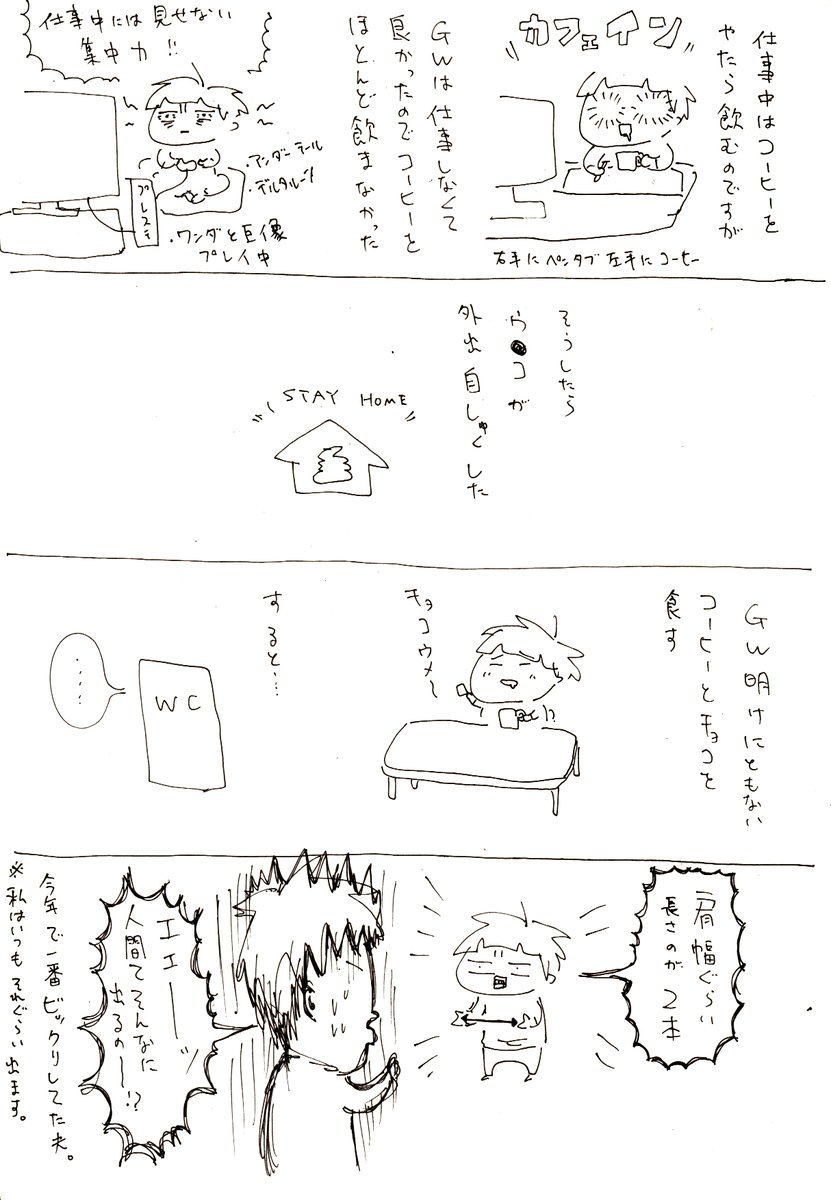 仕事中はコーヒーを
やたら飲むのですが
カフェイン
右手にペンタブ 左手にコーヒー
GWは仕事しなくて
良かったのでコーヒーを
ほとんど飲まなかった
仕事中には見せない
集中力!!
・アンダーテール
・デルタルーン
・ワンダと巨像
プレイ中
プレステ
そうしたら
ウ●コが
外出自しゅくした
STAY HOME
GW明けにともない
コーヒーとチョコを
食す
チョコウメ〜
すると…
WC
.....
肩幅ぐらい
長さのが2本
エェーーッ
人間てそんなに
出るの〜!?
今年で一番ビックリしてた夫。
※私はいつもそれぐらい出ます。